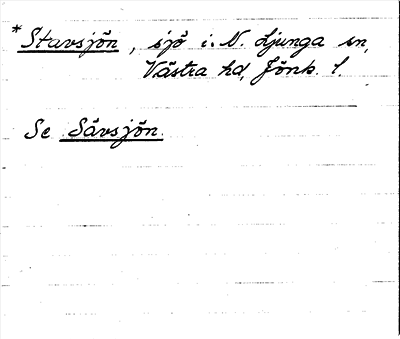 *Stavsjön, sjö i N. Ljunga sn,
Västra hd, Jönk. l.
Se Sävsjön.